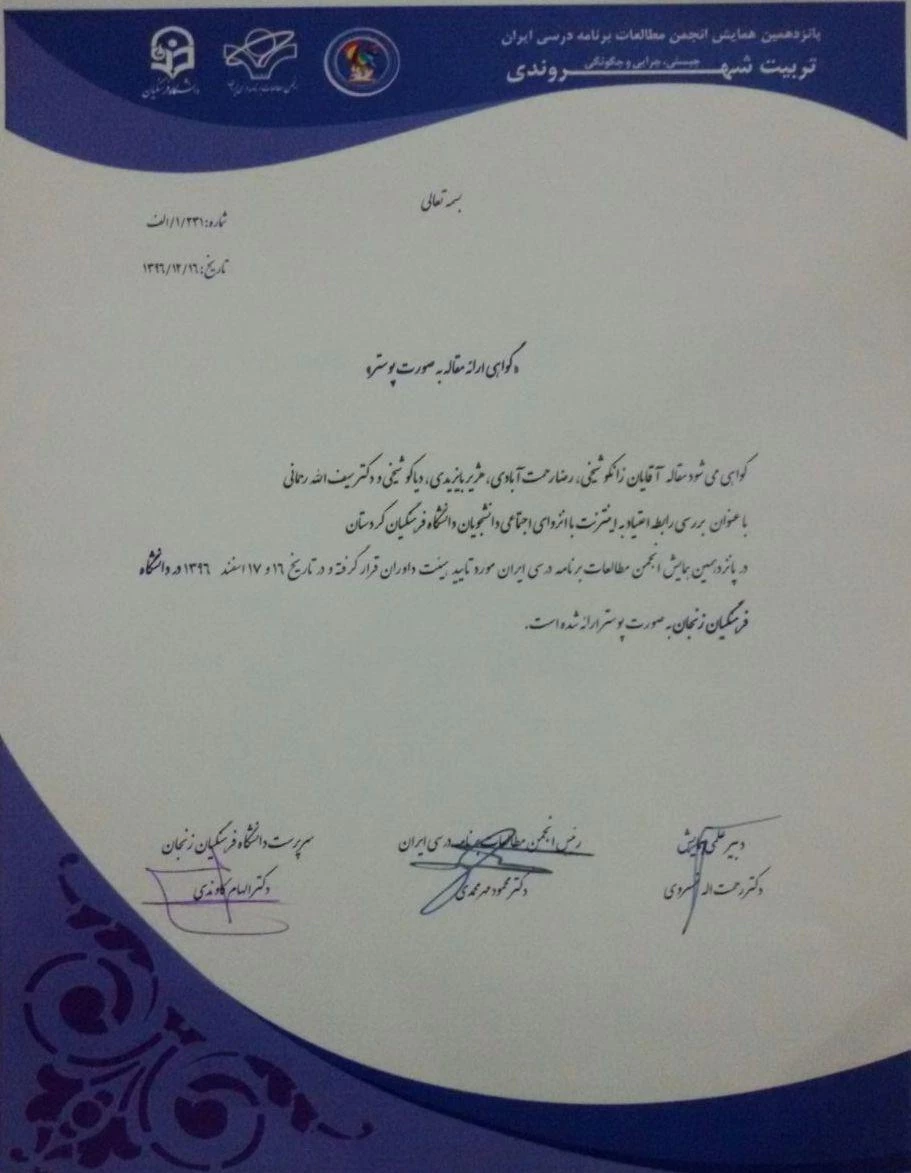 پانزدهمین همایش انجمن مطالعات برنامه درسی ایران
تربیت شهروندی چیستی، چرایی و چگونگی
دانشگاه فرهنگیان
بسمه تعالی
شماره: ۱/۲۳۱/الف
تاریخ: ۱۳۹۶/۱۲/۱۶
«گواهی ارائه مقاله به صورت پوستر»
گواهی می شود مقاله آقایان زانکو شیخی، رضا رحمت آبادی، هژیر بایزیدی، دیاکو شیخی و دکتر سیف الله رحمانی
با عنوان بررسی رابطه اعتیاد به اینترنت با انزوای اجتماعی دانشجویان دانشگاه فرهنگیان کردستان
در پانزدهمین همایش انجمن مطالعات برنامه درسی ایران مورد تایید هیئت داوران قرار گرفته و در تاریخ ۱۶ و ۱۷ اسفند ۱۳۹۶ در دانشگاه
فرهنگیان زنجان به صورت پوستر ارائه شده است.
دبیر علمی همایش
دکتر رحمت اله خسروی
رئیس انجمن مطالعات برنامه درسی ایران
دکتر محمود مهرمحمدی
سرپرست دانشگاه فرهنگیان زنجان
دکتر الهام کاوندی